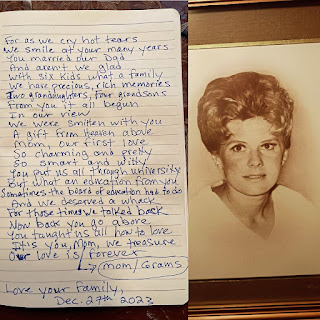 For as we cry hot tears
We smile at your many years
You married our Dad
And aren't we glad
With six kids what a family
We have precious, rich memories
Two granddaughters, four grandsons
From you it all begun
In our view
We were smitten with you
A gift from Heaven above
Mom, our first love
So charming and pretty
So smart and witty
You put us all through university
But what an education from you
Sometimes the board of education had to do
And we deserved a whack
For those times we talked back
Now back you go above
You taught us all how to love
It's you, Mom, we treasure
Our love is forever
(Mom/Grams)
Love your Family,
Dec. 27th 2023